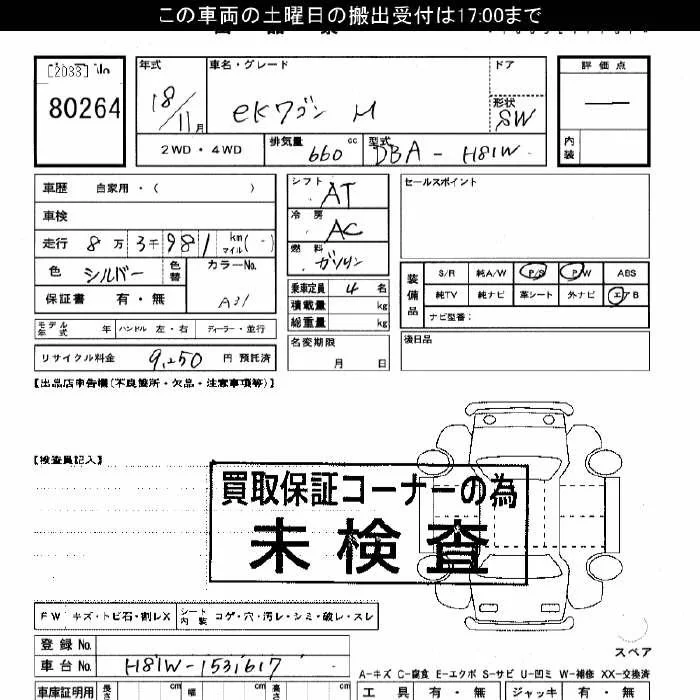 この車両の土曜日の搬出受付は17:00まで
[2033] No
80264
年式 車名・グレード ドア 評価点
18/11月 eKワゴン M 形状 SW
2WD・4WD 排気量 660 cc 型式 DBA-H81W 内装
車歴 自家用・( )
シフト AT
セールスポイント
車検
冷房 AC
走行 8万3千981 km マイル(-)
燃料 ガソリン
色 シルバー 色替 カラーNo. A31
装備品 S/R 純A/W P/S P/W ABS
純TV 純ナビ 革シート 外ナビ エアB
ナビ型番:
保証書 有・無
乗車定員 4 名
積載量 kg
総重量 kg
モデル年式 年 ハンドル 左・右 ディーラー・並行
名変期限 月 日
後日品
リサイクル料金 9,250 円 預託済
【出品店申告欄(不良箇所・欠品・注意事項等)】
【検査員記入】
買取保証コーナーの為
未検査
FW キズ・トビ石・割レX シート内装 コゲ・穴・汚レ・シミ・破レ・スレ
登録No.
スペア
車台No. H81W-1531617
A-キズ C-腐食 E-エクボ S-サビ U-凹ミ W-補修 XX-交換済
車庫証明用 長さ cm 幅 cm 高さ cm 工具 有・無 ジャッキ 有・無